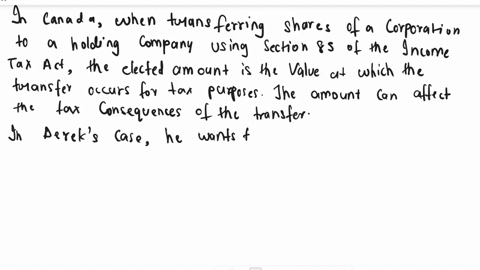 In Canada, when transferring shares of a Corporation
to a holding Company using Section 85 of the Income
Tax Act, the elected amount is the Value at which the
transfer occurs for tax purposes. The amount can affect
the tax Consequences of the transfer.
In Derek's Case, he wants t